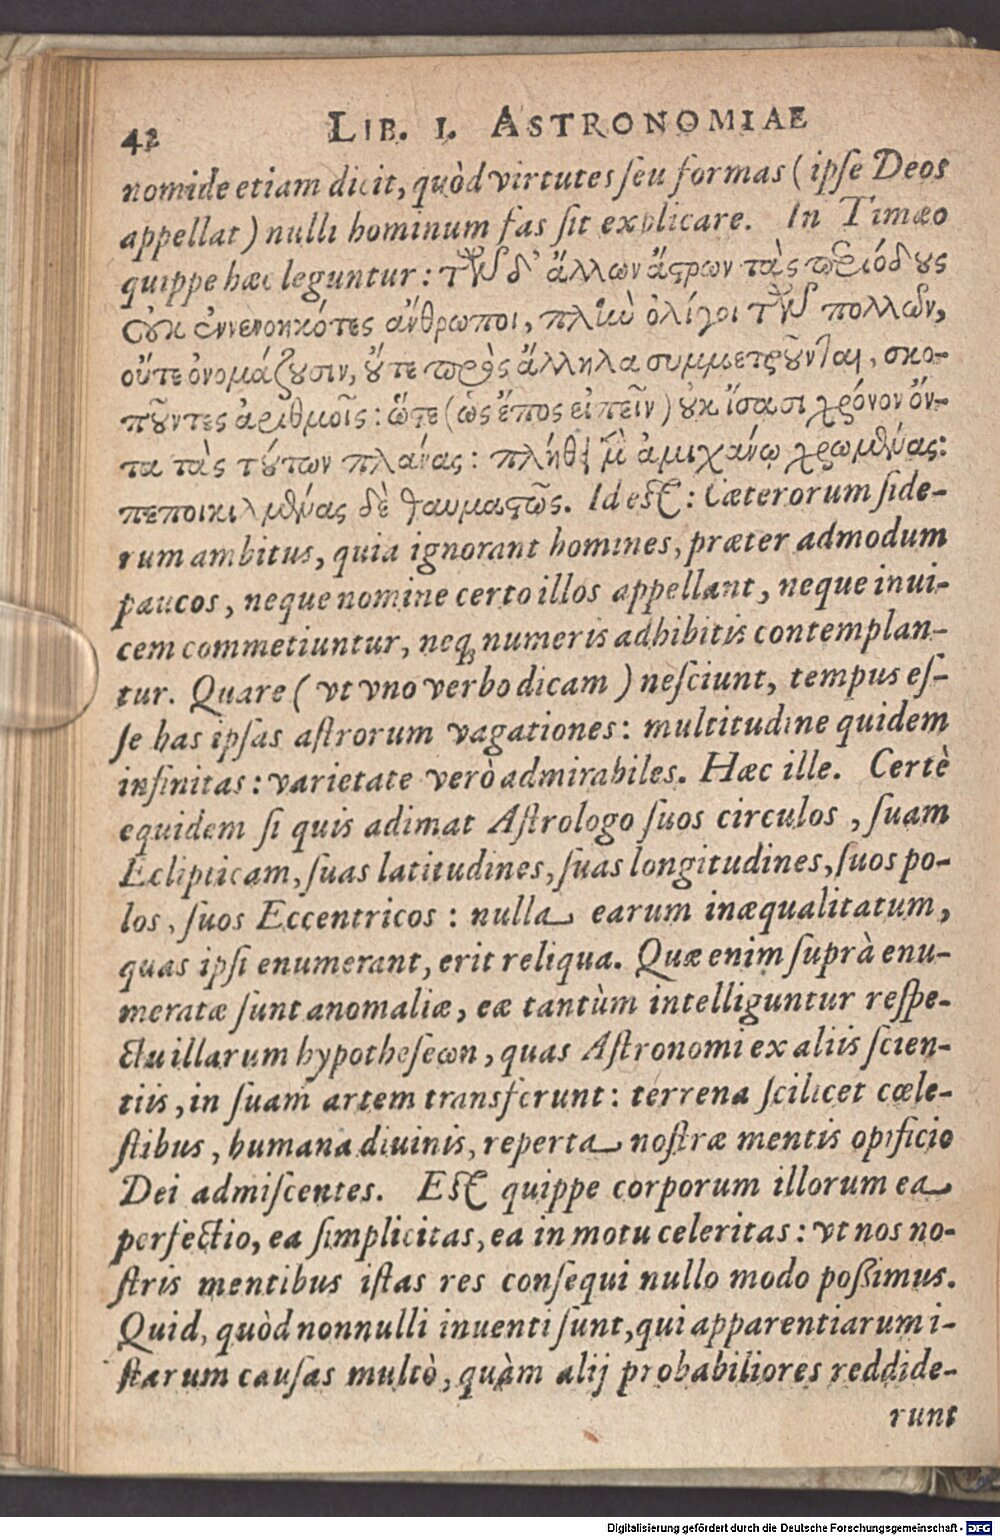 42 LIB. I. ASTRONOMIAE
nomide etiam dicit, quòd virtutes ſeu formas (ipſe Deos
appellat) nulli hominum fas ſit explicare. In Timæo
quippe hæc leguntur: τῶν δ' ἄλλων ἄϛρων τὰς περιόδȣς
οὐκ ἐννενοηκότες ἄνθρωποι, πλὴν ὀλίγοι τῶν πολλῶν,
οὔτε ὀνομάζȣσιν, ȣ̓́τε πρὸς ἄλληλα συμμετρȣ͂νται, σκο-
πȣ͂ντες ἀριθμοῖς: ὥϛε (ὡς ἔπος εἰπεῖν) ȣ̓κ ἴσασι χρόνον ὄν-
τα τὰς τȣ́των πλάνας: πλήθει μὲν ἀμιχάνῳ χρωμένας:
πεποικιλμένας δὲ θαυμαϛῶς. Id eſt: Cæterorum ſide-
rum ambitus, quia ignorant homines, præter admodum
paucos, neque nomine certo illos appellant, neque inui-
cem commetiuntur, neq; numeris adhibitis contemplan-
tur. Quare (vt vno verbo dicam) neſciunt, tempus eſ-
ſe has ipſas aſtrorum vagationes: multitudine quidem
infinitas: varietate verò admirabiles. Hæc ille. Certè
equidem ſi quis adimat Aſtrologo ſuos circulos, ſuam
Eclipticam, ſuas latitudines, ſuas longitudines, ſuos po-
los, ſuos Eccentricos: nulla earum inæqualitatum,
quas ipſi enumerant, erit reliqua. Quæ enim ſuprà enu-
meratæ ſunt anomaliæ, eæ tantùm intelliguntur reſpe-
ctu illarum hypotheſeωn, quas Aſtronomi ex aliis ſcien-
tiis, in ſuam artem transferunt: terrena ſcilicet cœle-
ſtibus, humana diuinis, reperta noſtræ mentis opificio
Dei admiſcentes. Eſt quippe corporum illorum ea
perfectio, ea ſimplicitas, ea in motu celeritas: vt nos no-
ſtris mentibus iſtas res conſequi nullo modo poßimus.
Quid, quòd nonnulli inuenti ſunt, qui apparentiarum i-
ſtarum cauſas multò, quàm alij probabiliores reddide-
runt
Digitalisierung gefördert durch die Deutsche Forschungsgemeinschaft - DFG